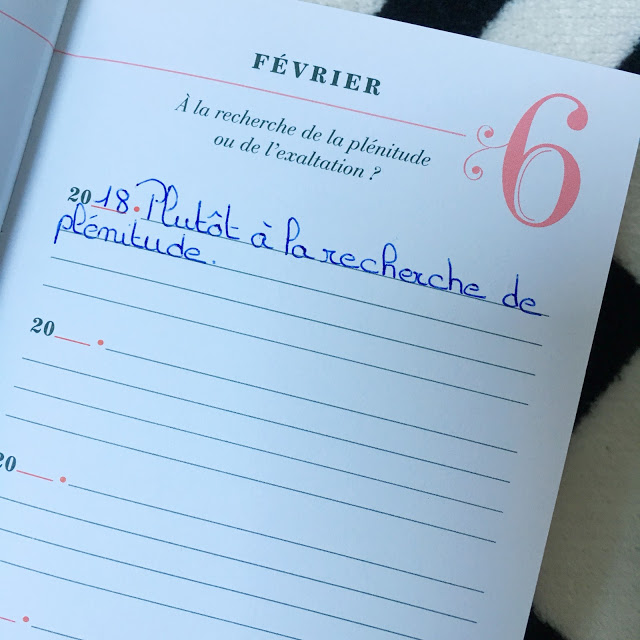 FÉVRIER
6
À la recherche de la plénitude
ou de l'exaltation ?
2018. Plutôt à la recherche de
plénitude.
20__.
20__.